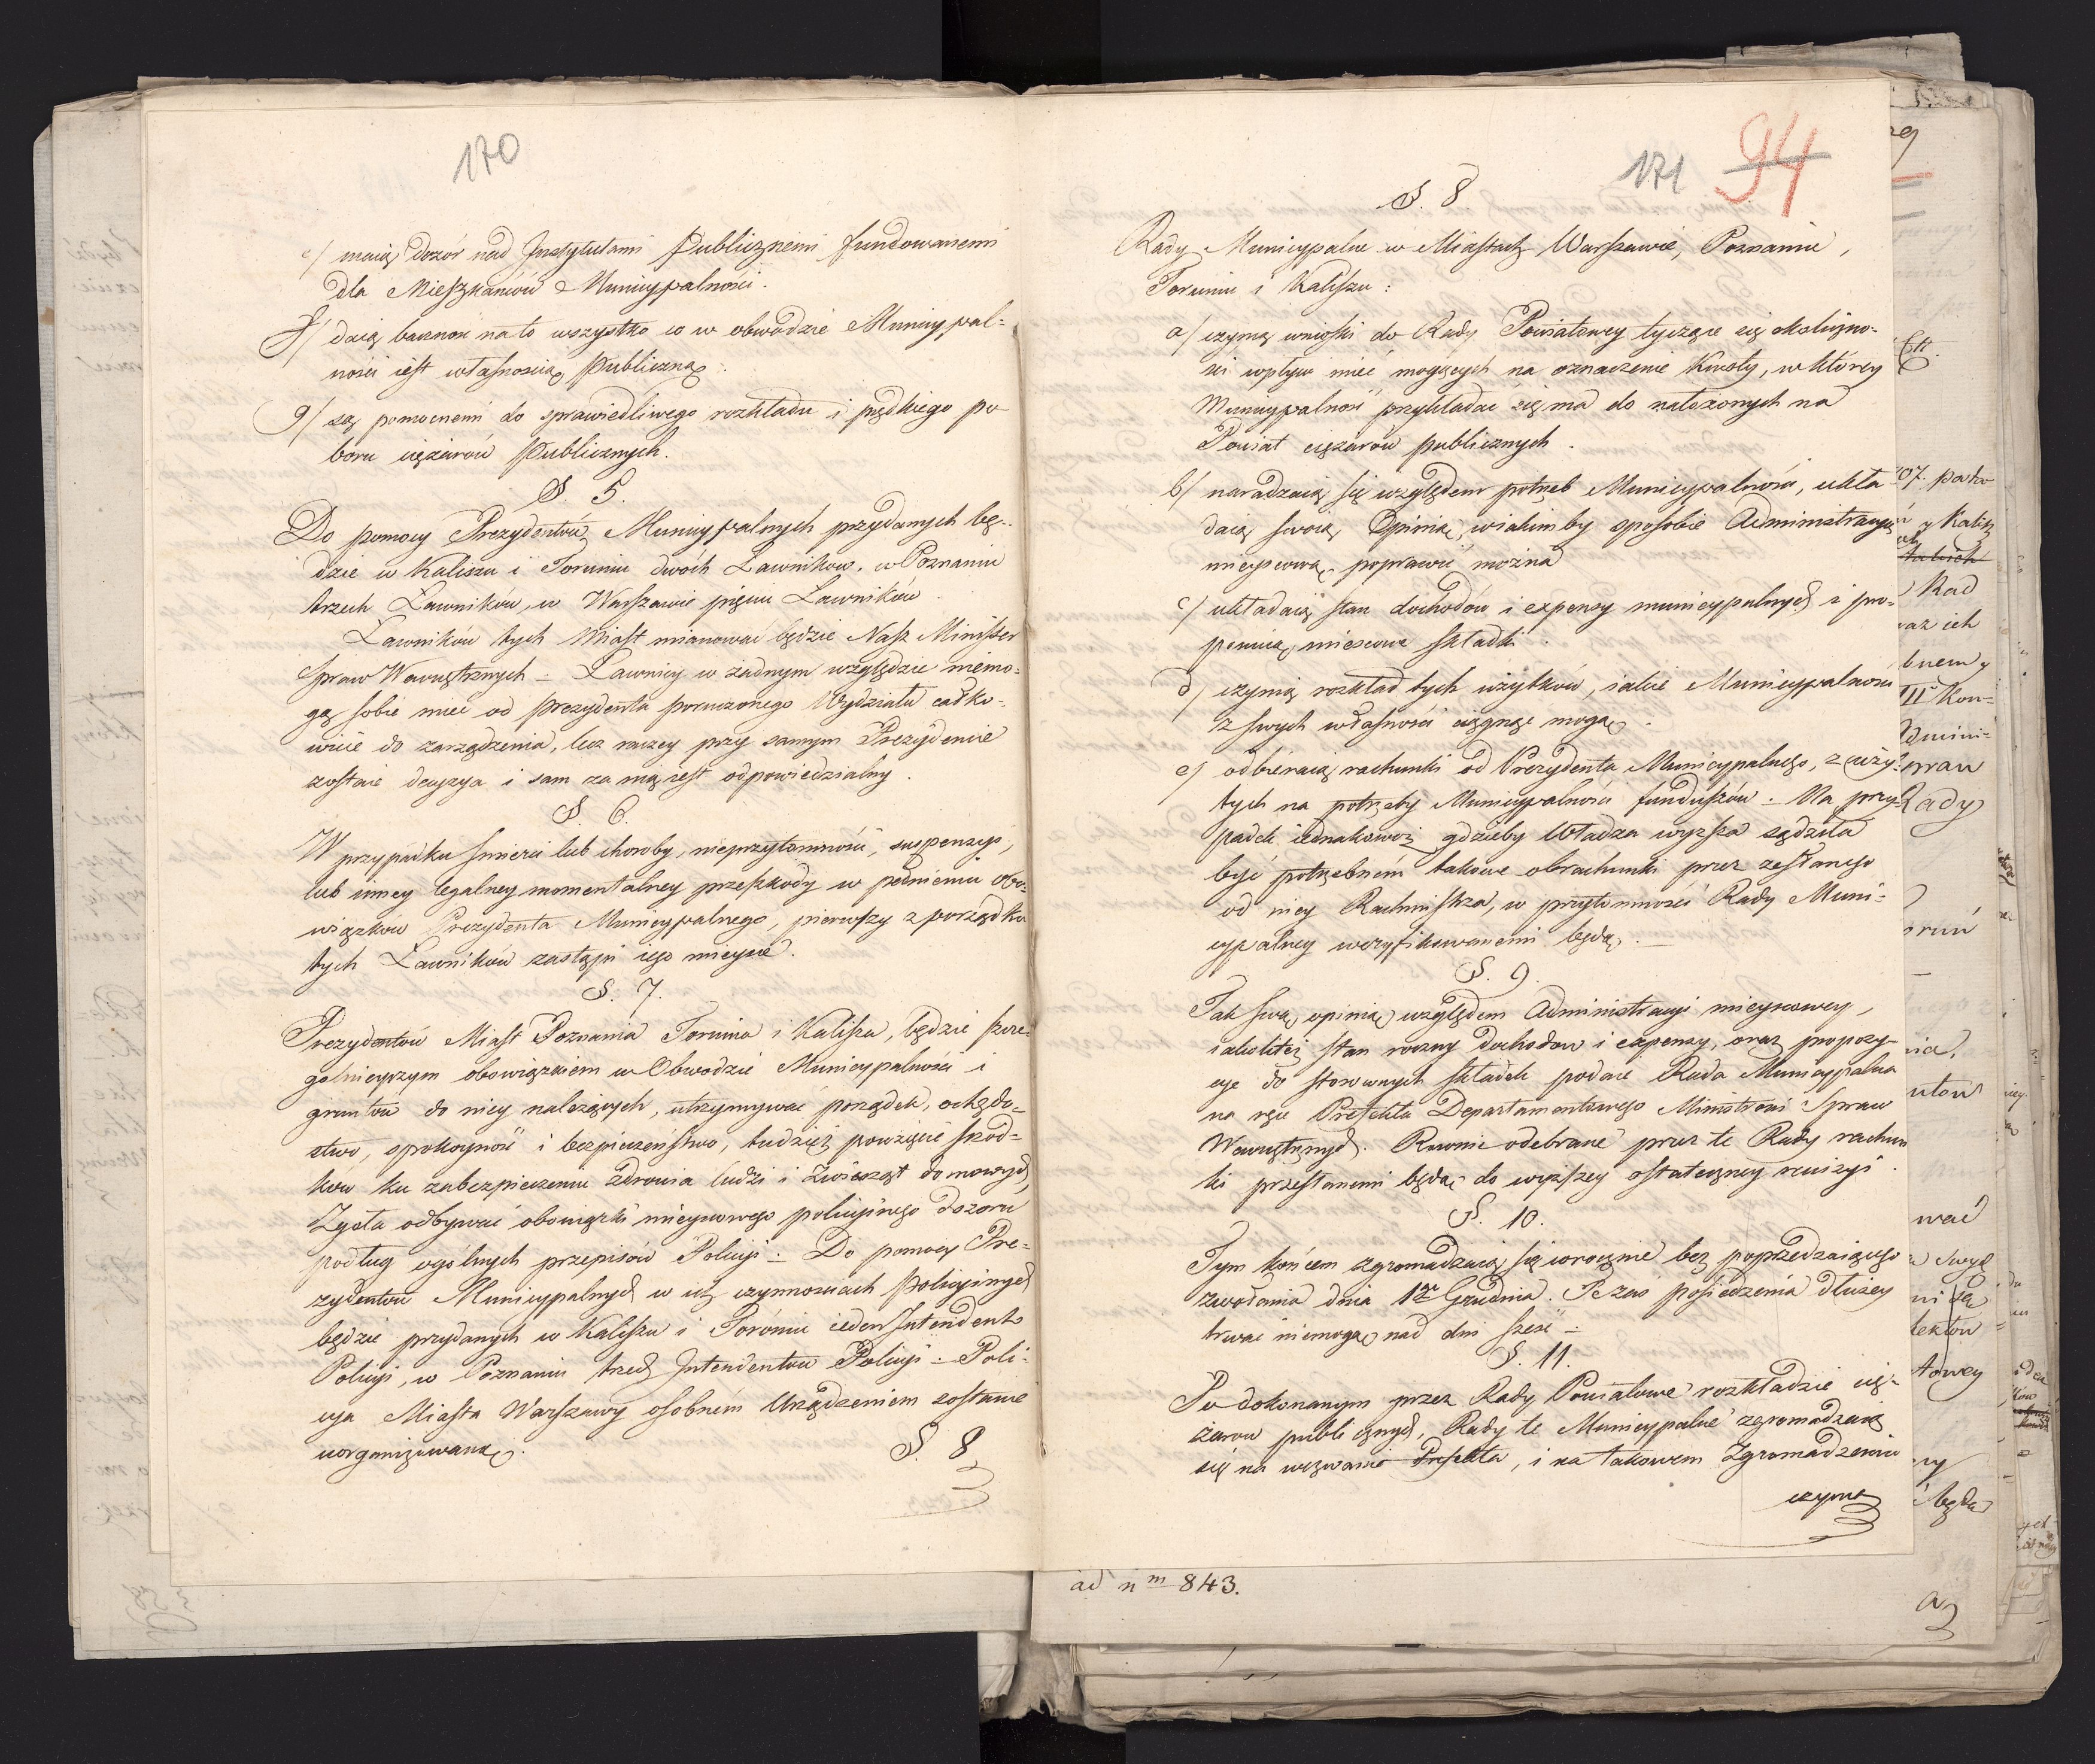 170
e/ maią dozór nad Instytutami Publicznemi fundowanemi
dla Mieszkańców Municypalności.
f/ daią baczność na to wszystko co w obwodzie Municypal-
ności iest własnością Publiczną.
g/ są pomocnemi do sprawiedliwego rozkładu i prędkiego po
boru ciężarów Publicznych.
§. 5.
Do pomocy Prezydentów Municypalnych przydanych bę-
dzie w Kaliszu i Toruniu dwóch Ławników, w Poznaniu
trzech Ławników, w Warszawie pięciu Ławników
Ławników tych Miast mianować będzie Nasz Minister
Spraw Wewnętrznych – Ławnicy w żadnym względzie niemo-
gą sobie mieć od Prezydenta poruczonego Wydziału całko-
wicie do zarządzenia, lecz raczey przy samym Prezydencie
zostaie decyzya i sam za nią iest odpowiedzialny.
§. 6.
W przypadku śmierci lub choroby, nieprzytomności, suspensyi,
lub inney legalney momentalney przeszkody w pełnieniu obo-
wiązków Prezydenta Municypalnego, pierwszy z porządku
tych Ławników zastąpi iego mieysce.
§. 7.
Prezydentów Miast Poznania Torunia i Kalisza, będzie szcze-
gólnieyszym obowiązkiem w Obwodzie Municypalności i
gruntów do niey należących, utrzymywać porządek, ochędo-
stwo, spokoyność i bezpieczeństwo, tudzież powzięcie środ-
ków ku zabezpieczeniu zdrowia ludzi i Zwierząt domowych,
Zgoła odbywać obowiązki mieyscowego policyinego dozoru
podług ogólnych przepisów Policyi. Do pomocy Pre-
zydentów Municypalnych w ich czynnościach policyinych
będzie przydanych w Kaliszu i Toruniu ieden Intendent
Policyi, w Poznaniu trzech Intendentów Policyi – Poli-
cya Miasta Warszawy osobném Urządzeniem zostanie
uorganizowaną.
§. 8
171 94
§. 8.
Rady Municypalne w Miastach Warszawie, Poznaniu,
Toruniu i Kaliszu:
a/ czynią wnioski do Rady Powiatowey tyczące się okoliczno-
ści wpływ mieć mogących na oznaczenie Kwoty, w którey
Municypalność przykładać się ma do nałożonych na
Powiat ciężarów publicznych.
b/ naradzaią się względem potrzeb Municypalności, ukła
daią swoią Opinią, w iakimby sposobie Administracyą
mieyscową poprawić można
c/ układaią stan dochodów i expensy municypalnych i pro-
ponuią mieyscowe składki.
d/ czynią rozkład tych użytków, iakie Municypalności
z swych własności ciągnąć mogą.
e/ odbieraią rachunki od Prezydenta Municypalnego, z uży-
tych na potrzeby Municypalności funduszów. Na przy-
padek iednakowoż gdzieby Władza wyższa sądziła
być potrzebném takowe obrachunki przez zesłanego
od niey Rachmistrza, w przytomności Rady Muni-
cypalney weryfikowanemi będą.
§. 9.
Tak swą opinią względem Administracyi mieyscowey,
iakoliteż stan roczny Dochodów i expensy, oraz propozy-
cye do stosownych składek podaie Rada Municypalna
na ręce Prefekta Departamentowego Ministrowi Spraw
Wewnętrznych. Równie odebrane przez te Rady rachun
ki przesłanemi będą do wyższey ostateczney rewizyi.
§. 10.
Tym końcem zgromadzaią się corocznie bez poprzedzaiącego
zwołania dnia 1go Grudnia. Te zaś posiedzenia dłużey
trwać niemogą nad dni sześć –
§. 11.
Po dokonanym przez Rady Powiatowe rozkładzie cię-
żarów publicznych, Rady te Municypalne zgromadzaią
się na wezwanie Prefekta, i na takowem Zgromadzeniu
czynią
ad nm 843.